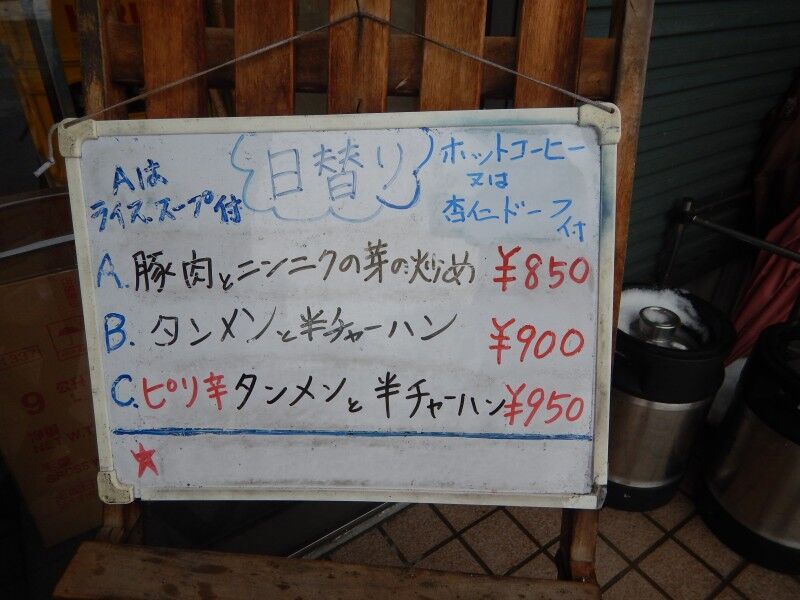 Aは
ライス、スープ付
日替り
ホットコーヒー
又は
杏仁ドーフ
付
A. 豚肉とニンニクの芽の炒め ¥850
B. タンメンと半チャーハン ¥900
C. ピリ辛タンメンと半チャーハン ¥950
★